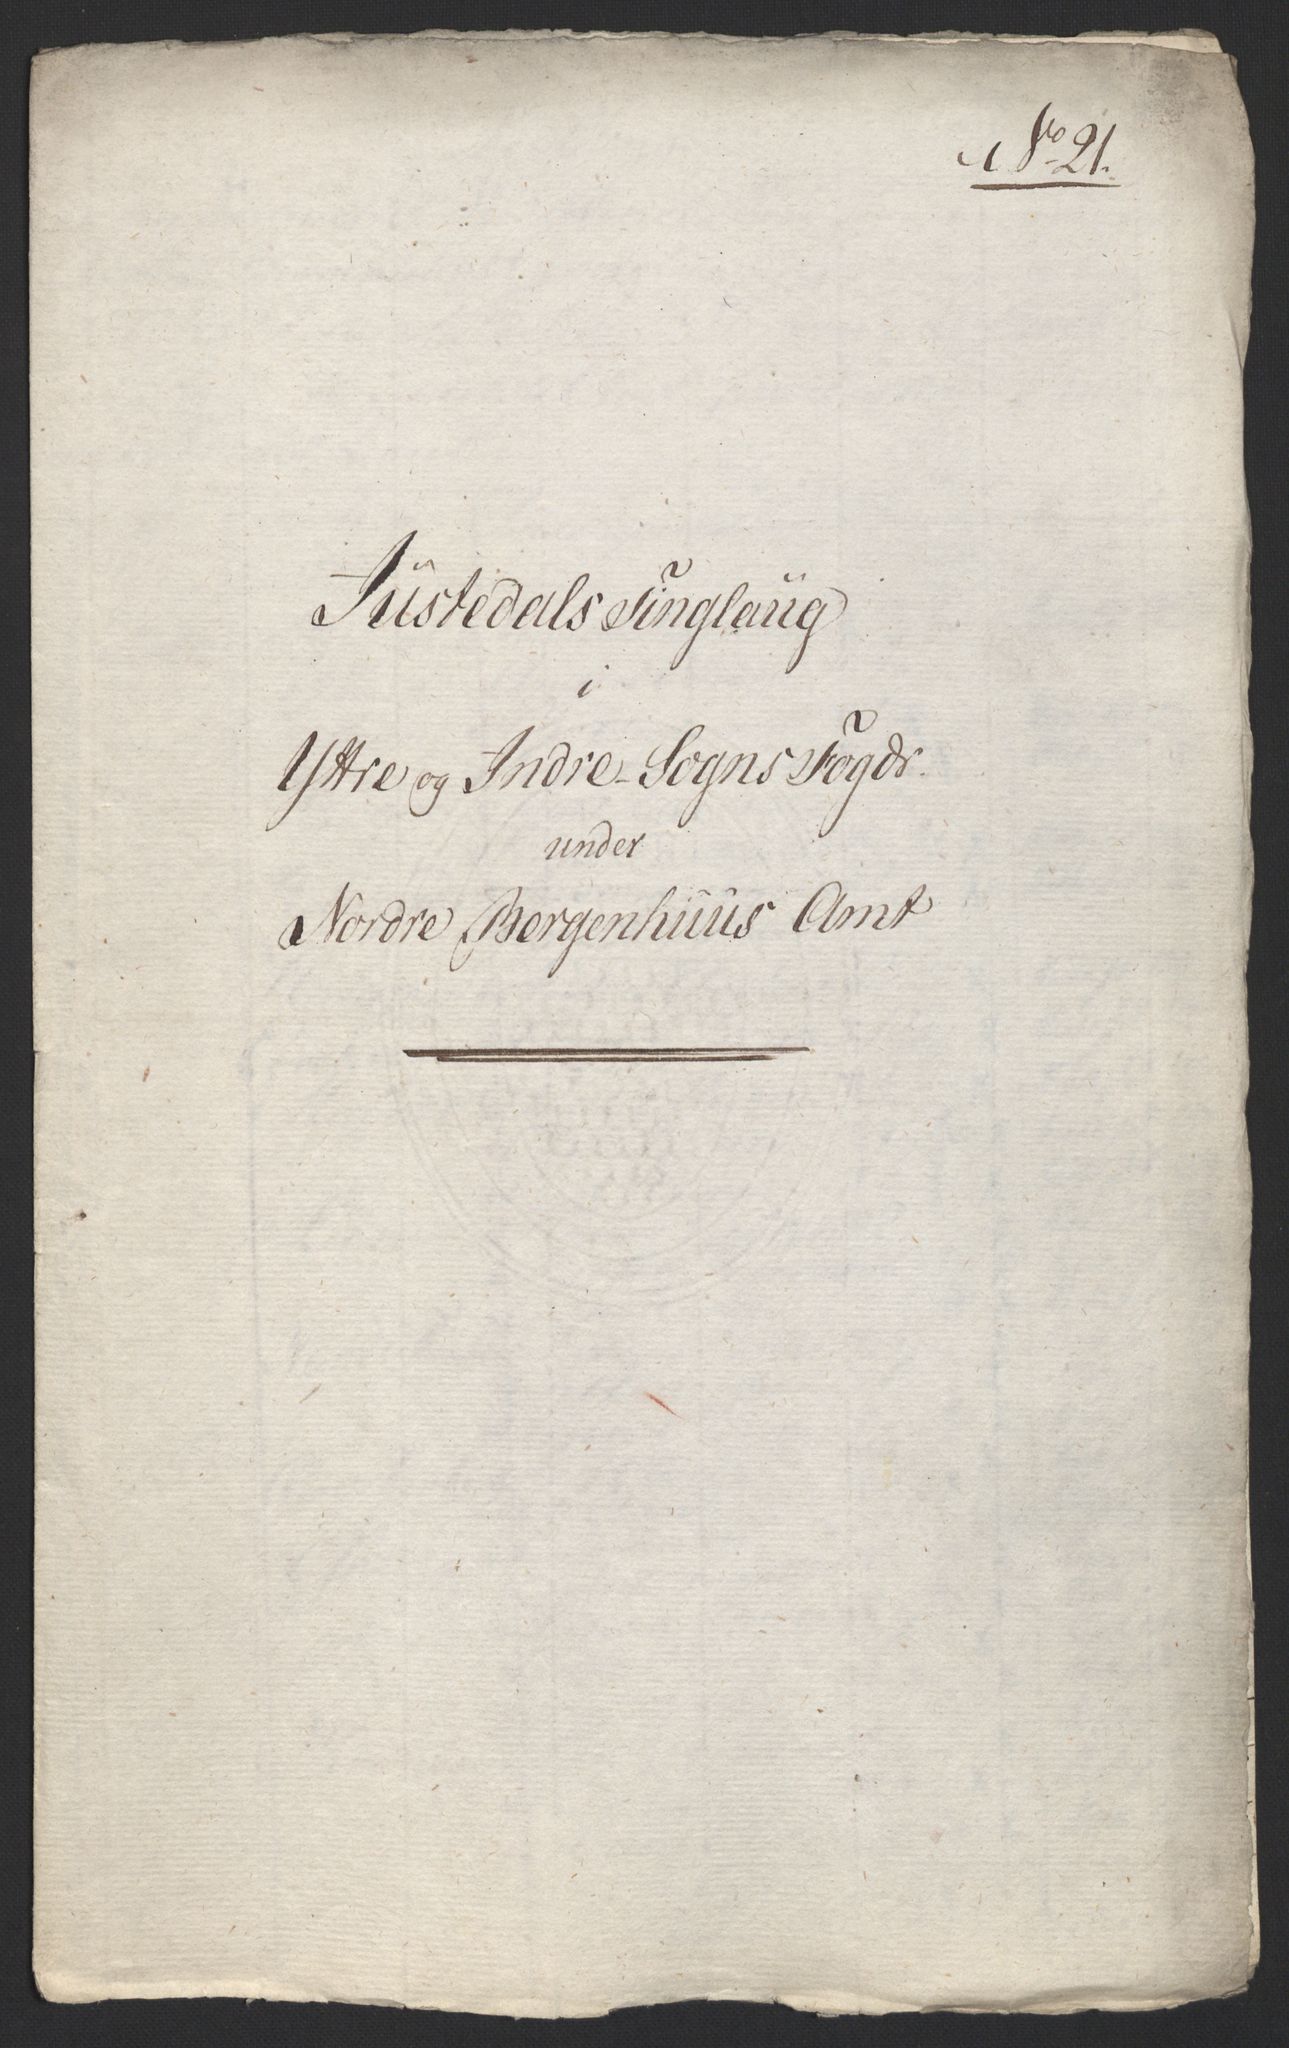 No 21.
Jüstedals Tinglaüg
i
Yttre og Indre-Sogns Fogdr.
under
Nordre Bergenhüüs Amt